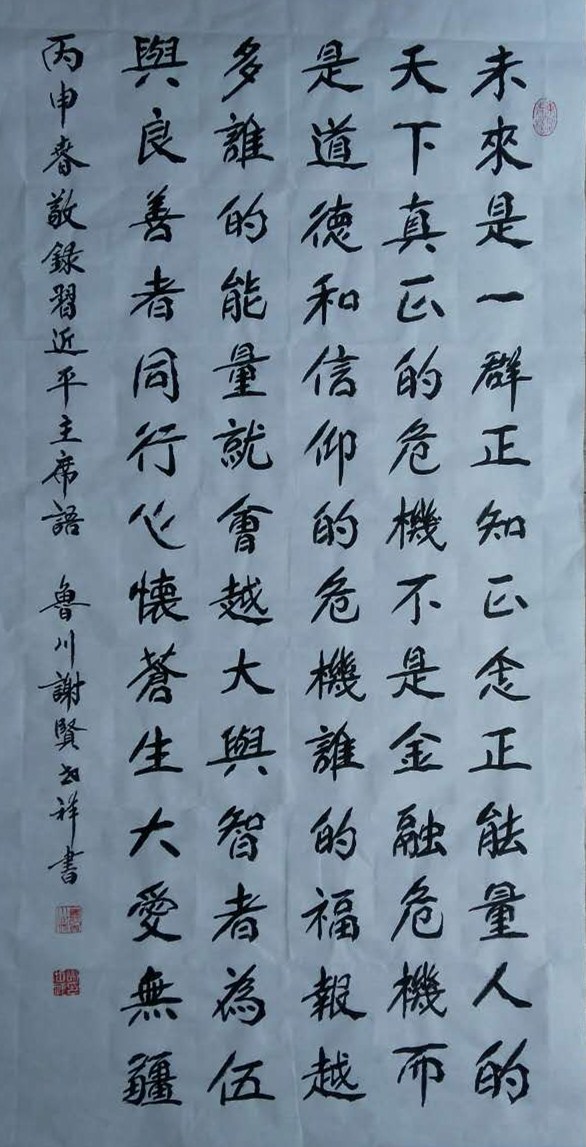 未來是一群正知正念正能量人的
天下真正的危機不是金融危機而
是道德和信仰的危機誰的福報越
多誰的能量就會越大與智者為伍
與良善者同行心懷蒼生大愛無疆
丙申春敬錄習近平主席語 魯川謝賢書祥書